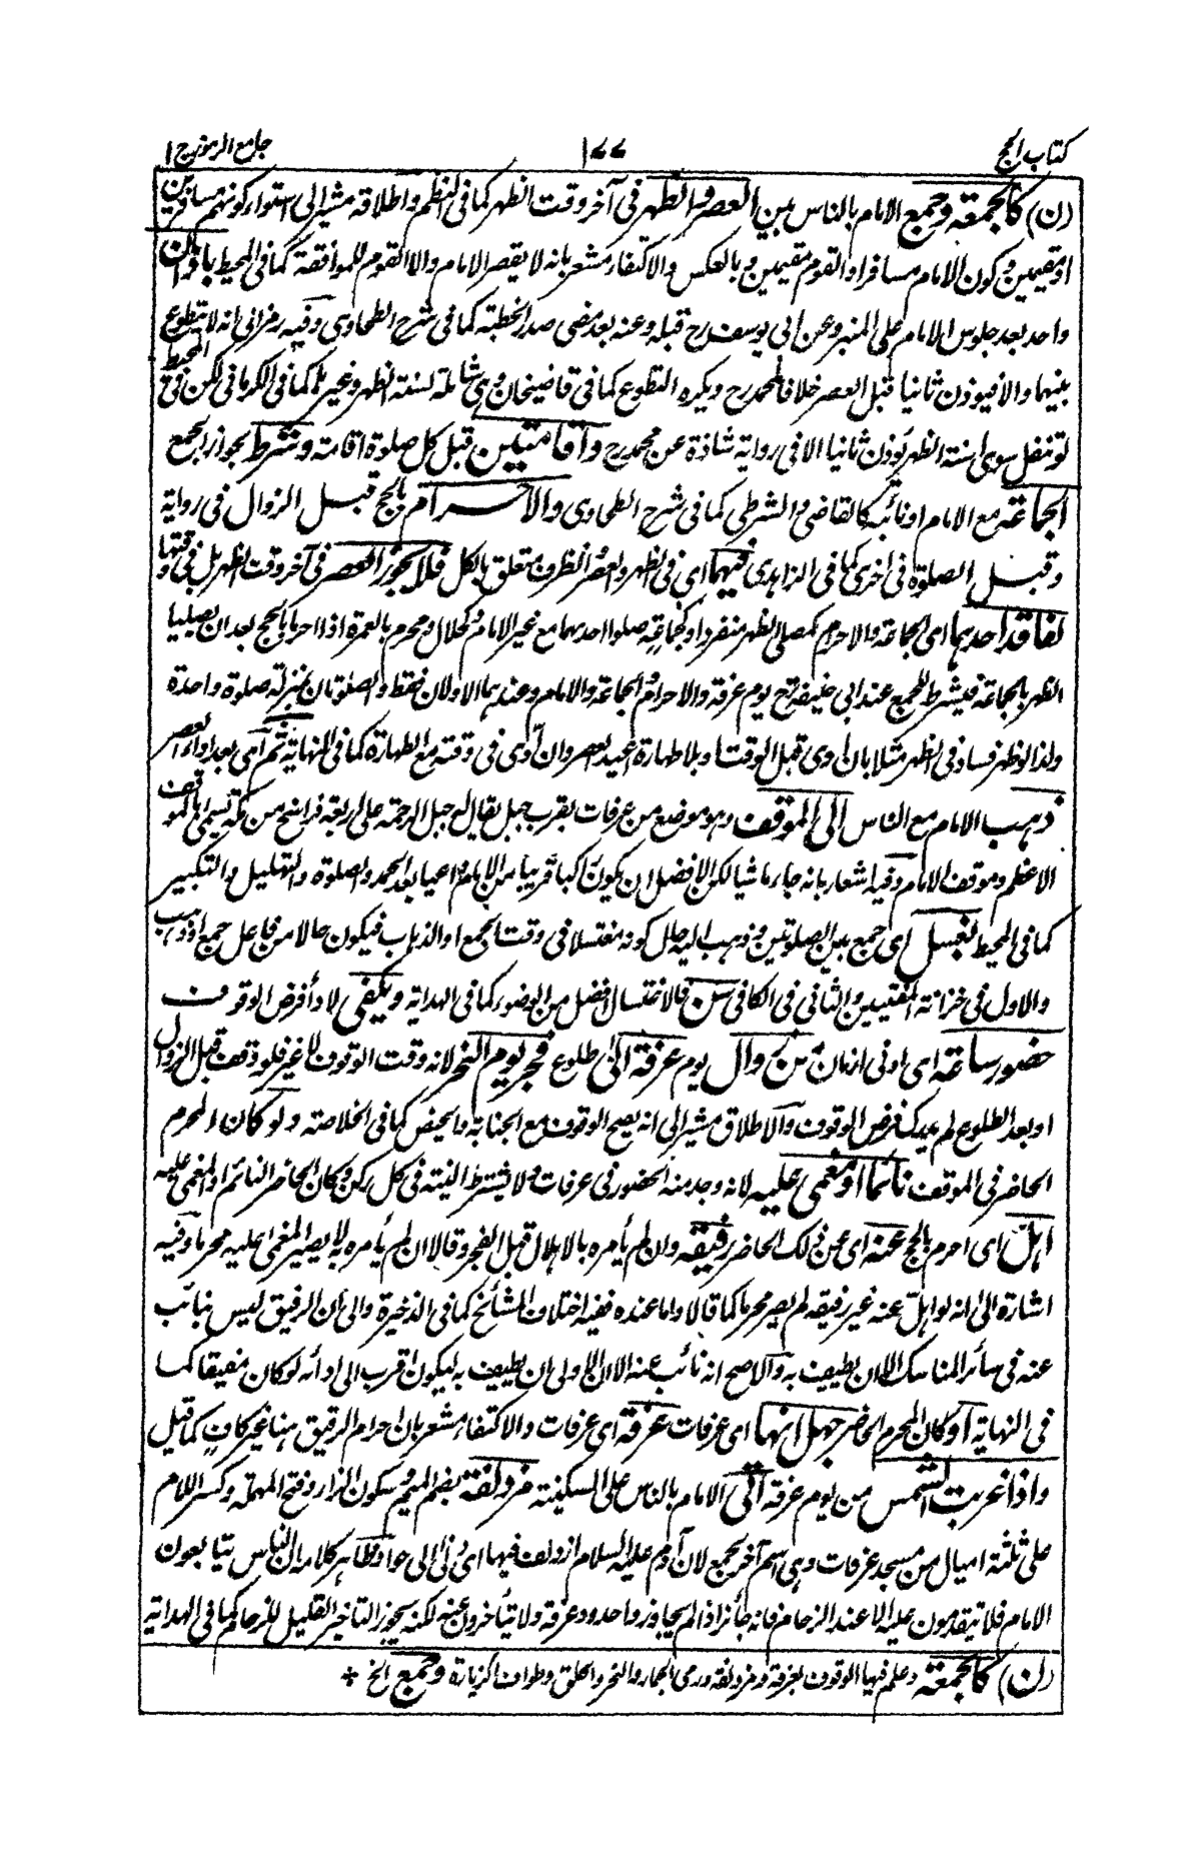 كتاب الحج
١٧٧
جامع الرموز ج ١
(ن) كالجمعة وجمع الامام بالناس بين العصر والظهر فى آخر وقت الظهر كما فى النظم واطلاقه مشير الى استواء كونهم مسافرين
او مقيمين وكون الامام مسافرا والقوم مقيمين وبالعكس والاكتفاء مشعر بانه لا يقصر الامام والا القوم للموافقة كما فى المحيط باذان
واحد بعد جلوس الامام على المنبر وعن ابى يوسف رح قبله وعنه بعد مضى صدر الخطبة كما فى شرح الطحاوى وفيه رمز الى انه لا يتطوع
بينهما والا فيوذن ثانيا قبل العصر خلافا لمحمد رح ويكره التطوع كما فى قاضيخان وهى شاملة لسنة الظهر وغيره كما فى الكرمانى لكن فى المحيط
لو تنفل سوى سنة الظهر يوذن ثانيا الا فى رواية شاذة عن محمد رح واقامتين قبل كل صلوة اقامة وشرط لجواز الجمع
الجماعة مع الامام او نائبه كالقاضى والشرطى كما فى شرح الطحاوى والاحرام بالحج قبل الزوال فى رواية
وقبل الصلوة فى اخرى كما فى الزاهدى فيهما اى فى الظهر والعصر الظرف متعلق بالكل فلا يجوز العصر فى آخر وقت الظهر بل فى وقتها
لفاقد احدهما اى الجماعة والاحرام كمصلى الظهر منفردا وكجماعة صلوا احدهما مع غير الامام وكحلال ومحرم بالعمرة اذا احرما بالحج بعد ان يصليا
الظهر بالجماعة فيشترط للجمع عند ابى حنيفة رح يوم عرفة والاحرام والجماعة والامام وعندهما الاولان فقط والصلوتان بمنزلة صلوة واحدة
ولذا لو ظهر فساد فى الظهر مثلا بان ادى قبل الوقت او بلا طهارة اعيد العصر وان ادى فى وقته مع الطهارة كما فى النهاية ثم اى بعد اداء العصر
ذهب الامام مع الناس الى الموقف وهو موضع من عرفات بقرب جبل يقال له جبل الرحمة على اربعة فراسخ من مكة يسمى بالموقف
الاعظم وموقف الامام وفيه اشعار بانه جاء ماشيا لكن الافضل ان يكون راكبا قريبا من الامام داعيا بعد الحمد والصلوة والتهليل والتكبير
كما فى المحيط بغسل اى جمع بين الصلوتين وذهب اليه حال كونه مغتسلا فى وقت الجمع او الذهاب فيكون حالا من فاعل جمع او ذهب
والاول فى خزانة المفتيين والثانى فى الكافى سن فالاغتسال افضل من الوضوء كما فى الهداية ويكفى لاداء فرض الوقوف
حضور ساعة اى ادنى ازمان من زوال يوم عرفة الى طلوع فجر يوم النحر لانه وقت الوقوف لا غير فلو وقف قبل الزوال
او بعد الطلوع لم يدرك فرض الوقوف والاطلاق مشير الى انه يصح الوقوف مع الجنابة والحيض كما فى الخلاصة ولو كان المحرم
الحاضر فى الموقف نائما او مغمى عليه لانه وجد منه الحضور فى عرفات ولا يشترط النية فى كل ركن وكان الحاضر النائم او المغمى عليه
اهل اى احرم بالحج عنه اى عن ذلك الحاضر رفيقه وان لم يأمره بالاهلال قبل الفجر وقالا ان لم يأمره به لا يصير المغمى عليه محرما وفيه
اشارة الى انه لو اهل عنه غير رفيقه لم يصر محرما كما قالا واما عنده ففيه اختلاف المشائخ كما فى الذخيرة والى ان الرفيق ليس بنائب
عنه فى سائر المناسك الا ان يطيف به والاصح انه نائب عنه الا ان الاولى ان يطيف به ليكون اقرب الى ادائه لو كان مفيقا كما
فى النهاية او كان المحرم الحاضر جهل انها اى عرفات عرفة اى عرفات والاكتفاء مشعر بان احرام الرفيق ههنا غير كاف كما قيل
واذا غربت الشمس من يوم عرفة اتى الامام بالناس على السكينة مزدلفة بضم الميم وسكون الزاء وفتح المهملة وكسر اللام
على ثلثة اميال من مسجد عرفات وهى اسم آخر لجمع لان آدم عليه السلام ازدلف فيها اى دنى الى حوا وظاهر كلامه ان الناس يتابعون
الامام فلا يتقدمون عليه الا عند الزحام فانه جائز اذا لم يجاوز واحدود عرفة ولا يتأخرون عنه لكنه يجوز التاخير القليل للزحام كما فى الهداية
(ن) كالجمعة وعلم فيها الوقوف بعرفة ومزدلفة ورمى الجمار والنحر والحلق وطواف الزيارة وجمع الخ +